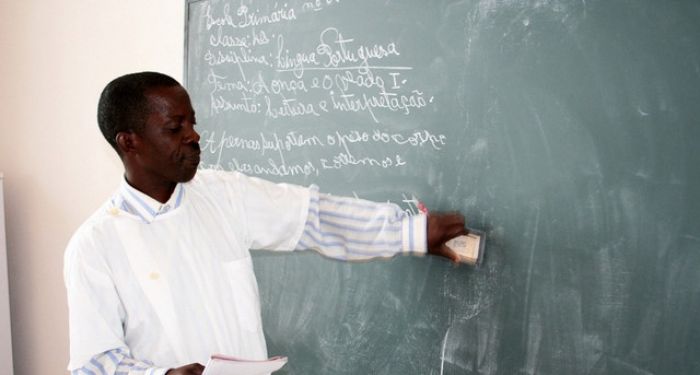 Escola Primária nº
classe:
Disciplina: Língua Portuguesa
Tema: A onça e o veado I.
Assunto: Leitura e interpretação.
Apernas suportam o peso do corpo
andamos, corremos e